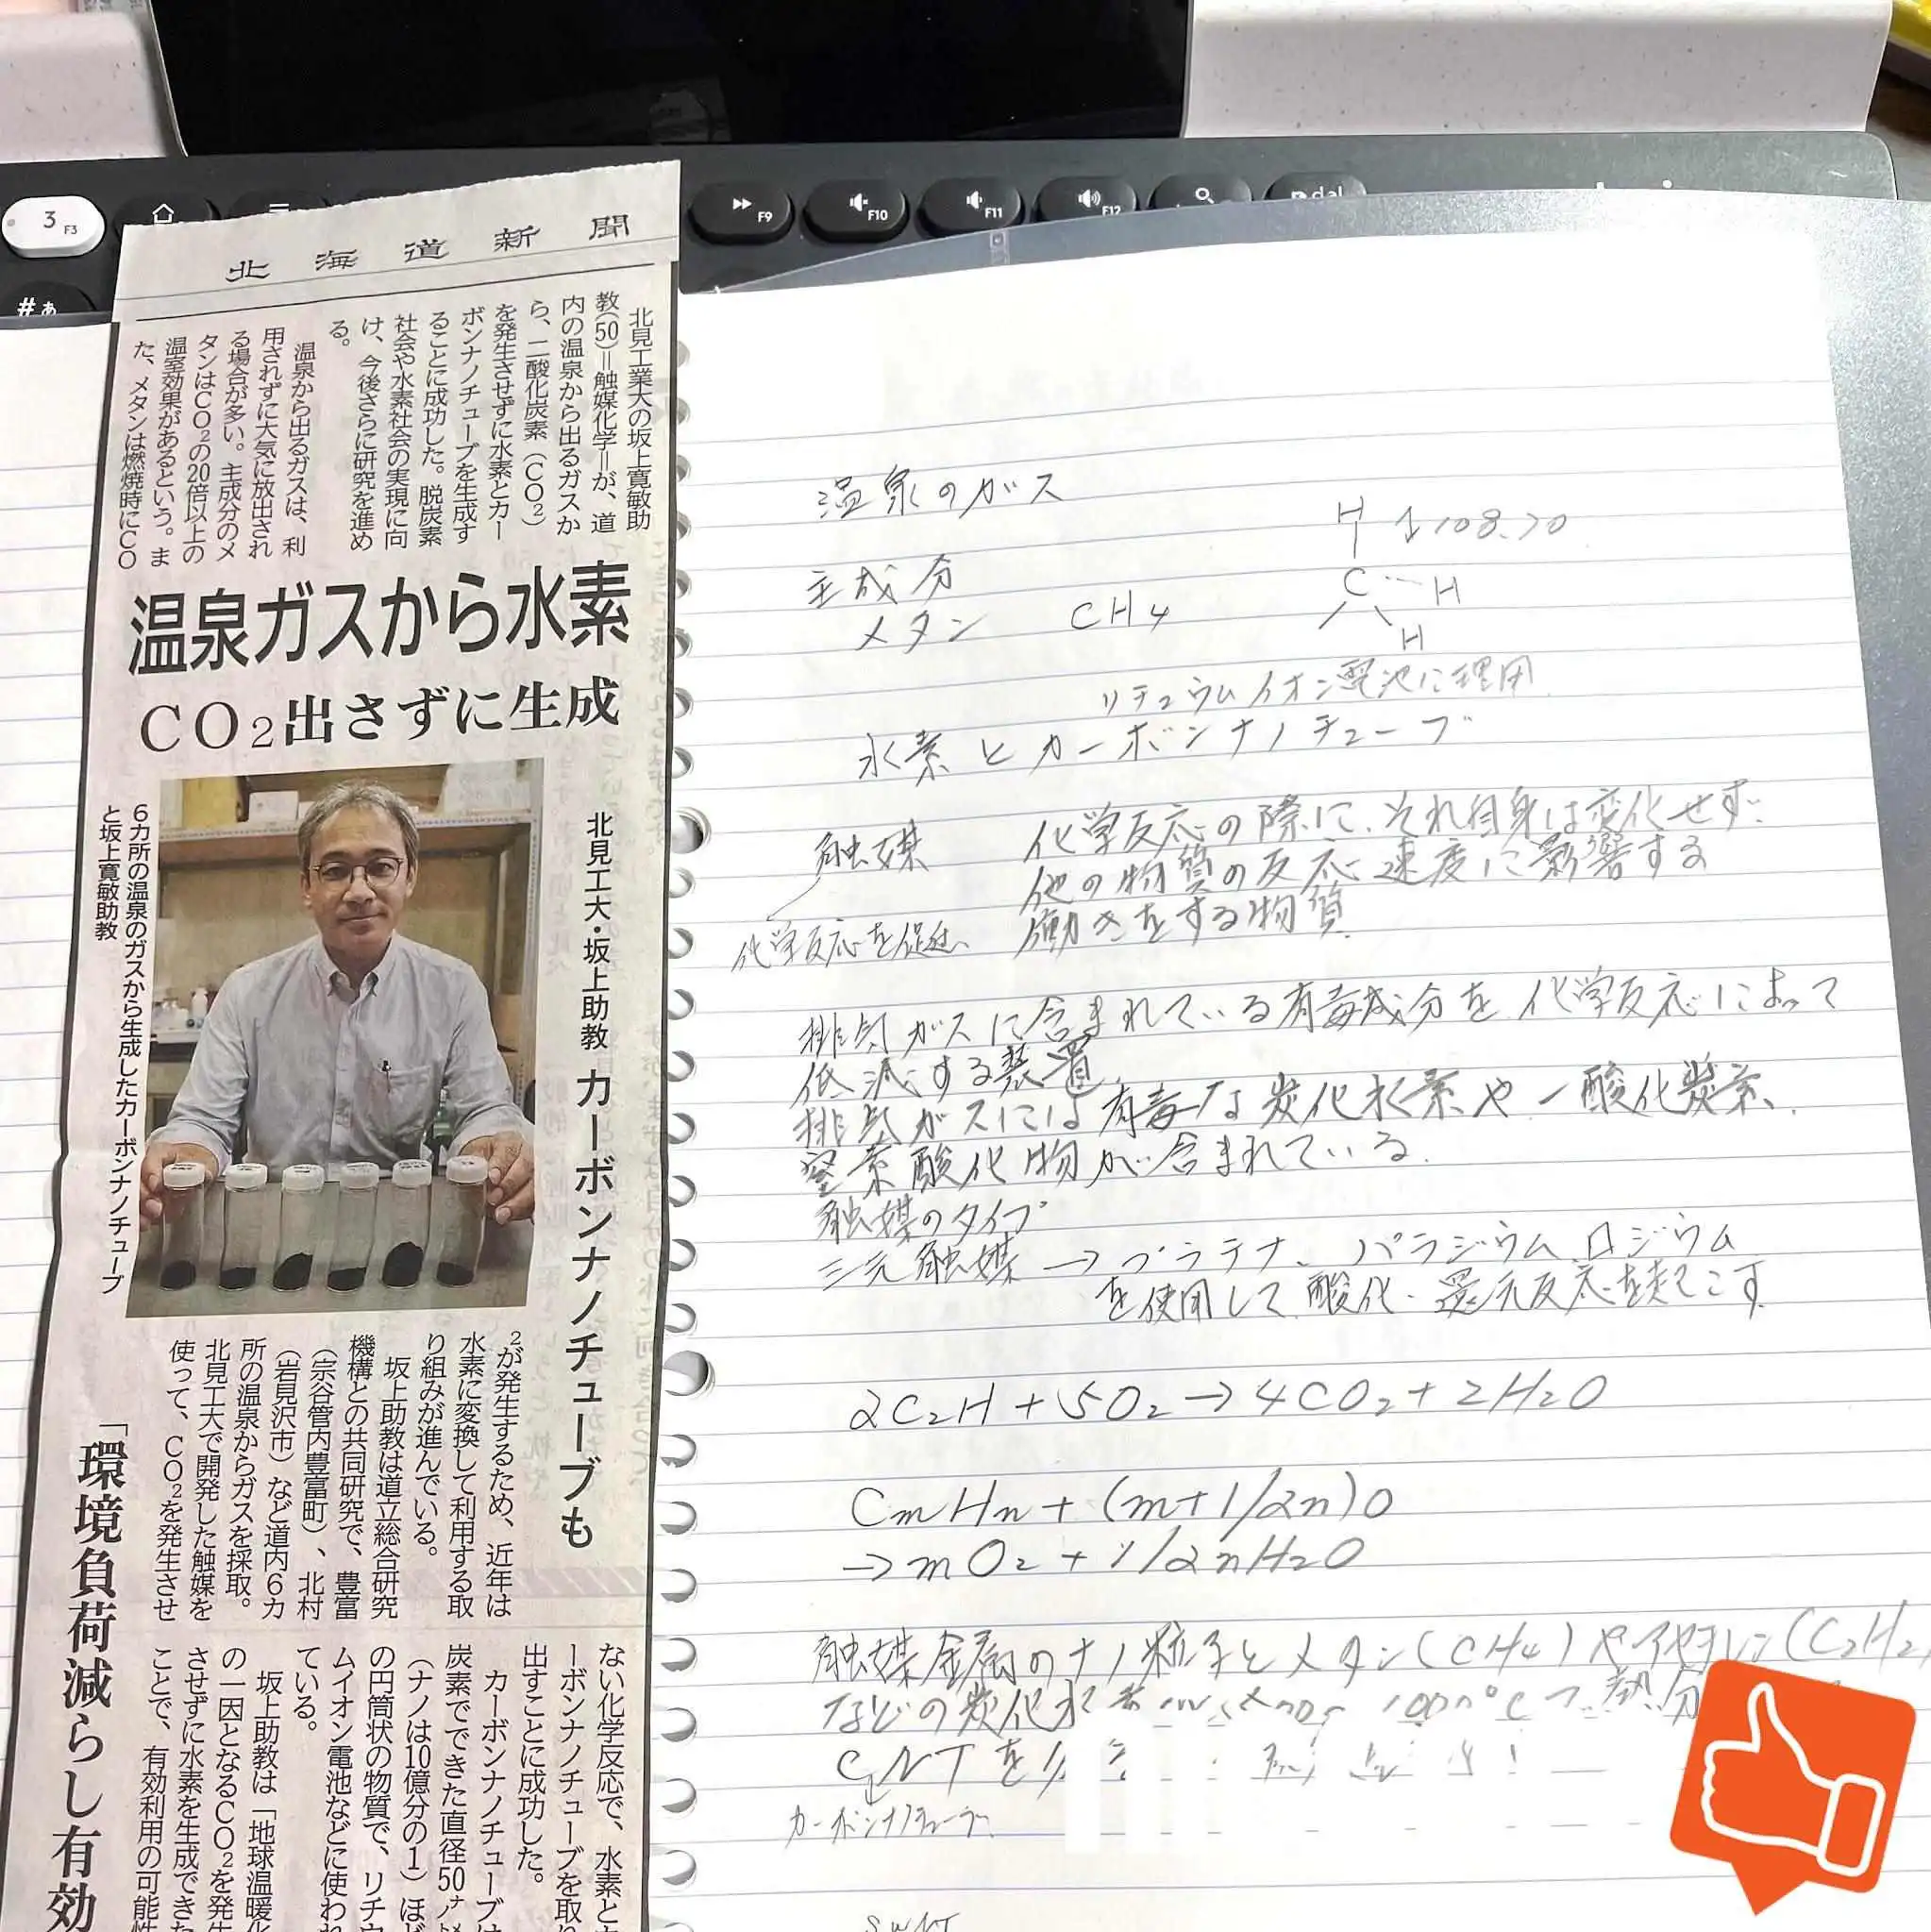 3 F3
F9
F10
F11
F12
#ぁ
北海道新聞
北見工業大の坂上寛敏助
教(50)=触媒化学=が、道
内の温泉から出るガスか
ら、二酸化炭素(CO₂)
を発生させずに水素とカー
ボンナノチューブを生成す
ることに成功した。脱炭素
社会や水素社会の実現に向
け、今後さらに研究を進め
る。
温泉から出るガスは、利
用されずに大気に放出され
る場合が多い。主成分のメ
タンはCO₂の20倍以上の
温室効果があるという。ま
た、メタンは燃焼時にCO
温泉ガスから水素
CO₂出さずに生成
北見工大・坂上助教 カーボンナノチューブも
6カ所の温泉のガスから生成したカーボンナノチューブ
と坂上寛敏助教
₂が発生するため、近年は
水素に変換して利用する取
り組みが進んでいる。
坂上助教は道立総合研究
機構との共同研究で、豊富
(宗谷管内豊富町)、北村
(岩見沢市)など道内6カ
所の温泉からガスを採取。
北見工大で開発した触媒を
使って、CO₂を発生させ
「環境負荷減らし有効
ない化学反応で、水素と
ーボンナノチューブを取り
出すことに成功した。
カーボンナノチューブは
炭素でできた直径50ナノ
(ナノは10億分の1)ほど
の円筒状の物質で、リチウ
ムイオン電池などに使われ
ている。
坂上助教は「地球温暖化
の一因となるCO₂を発生
させずに水素を生成できた
ことで、有効利用の可能性
温泉のガス
主成分
メタン CH₄
H 108.70
C H
H
リチュウムイオン電池に理用
水素とカーボンナノチューブ
触媒 化学反応の際に、それ自身は変化せず
他の物質の反応速度に影響する
働きをする物質
化学反応を促進
排気ガスに含まれている有毒成分を化学反応によって
低減する装置
排気ガスには有毒な炭化水素や一酸化炭素、
窒素酸化物が含まれている。
触媒のタイプ
三元触媒 → プラチナ、パラジウム、ロジウム
を使用して酸化・還元反応を起こす
2C₂H+5O₂→4CO₂+2H₂O
CmHn+(m+1/2n)O
→mO₂+1/2nH₂O
触媒金属のナノ粒子とメタン(CH₄)やアセチレン(C₂H₂)
などの炭化水 ℃で熱分
CNTを
カーボンナノチューブ